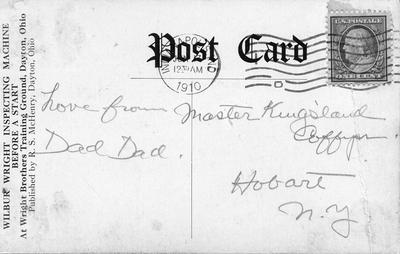 WILBUR WRIGHT INSPECTING MACHINE
BEFORE A START
At Wright Brothers Training Ground, Dayton, Ohio
Published by R. S. McHenry, Dayton, Ohio
Post Card
12 30 AM
1910
D
U.S. POSTAGE
ONE CENT
Love from
Dad Dad.
Master Kingsland
Coffyn.
Hobart
N.Y